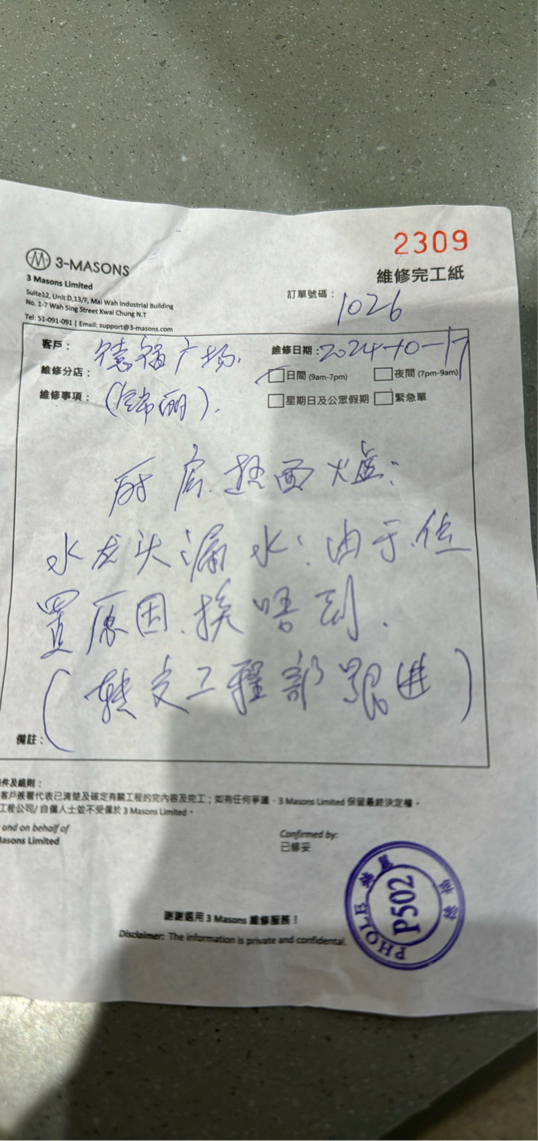 2309
3-MASONS
維修完工紙
3 Masons Limited
Suite12, Unit D,13/F, Mai Wah Industrial Building
No. 1-7 Wah Sing Street Kwai Chung N.T
Tel: 51-091-091 | Email: support@3-masons.com
訂單號碼： 1026
客戶： 德福广场. 維修日期：2024-10-17
維修分店： 日間 (9am-7pm) 夜間 (7pm-9am)
維修事項： 星期日及公眾假期 緊急單
厨房.
水龙头漏水：由于位
置原因.换唔到.
(转交工程部跟进)
備註：
件及細則：
客戶簽署代表已清楚及確定有關工程的完內容及完工；如有任何爭議，3 Masons Limited 保留最終決定權。
工程公司/自僱人士並不受僱於 3 Masons Limited。
and on behalf of Confirmed by:
asons Limited 已修妥
P502
謝謝選用 3 Masons 維修服務！
Disclaimer: The information is private and confidental.